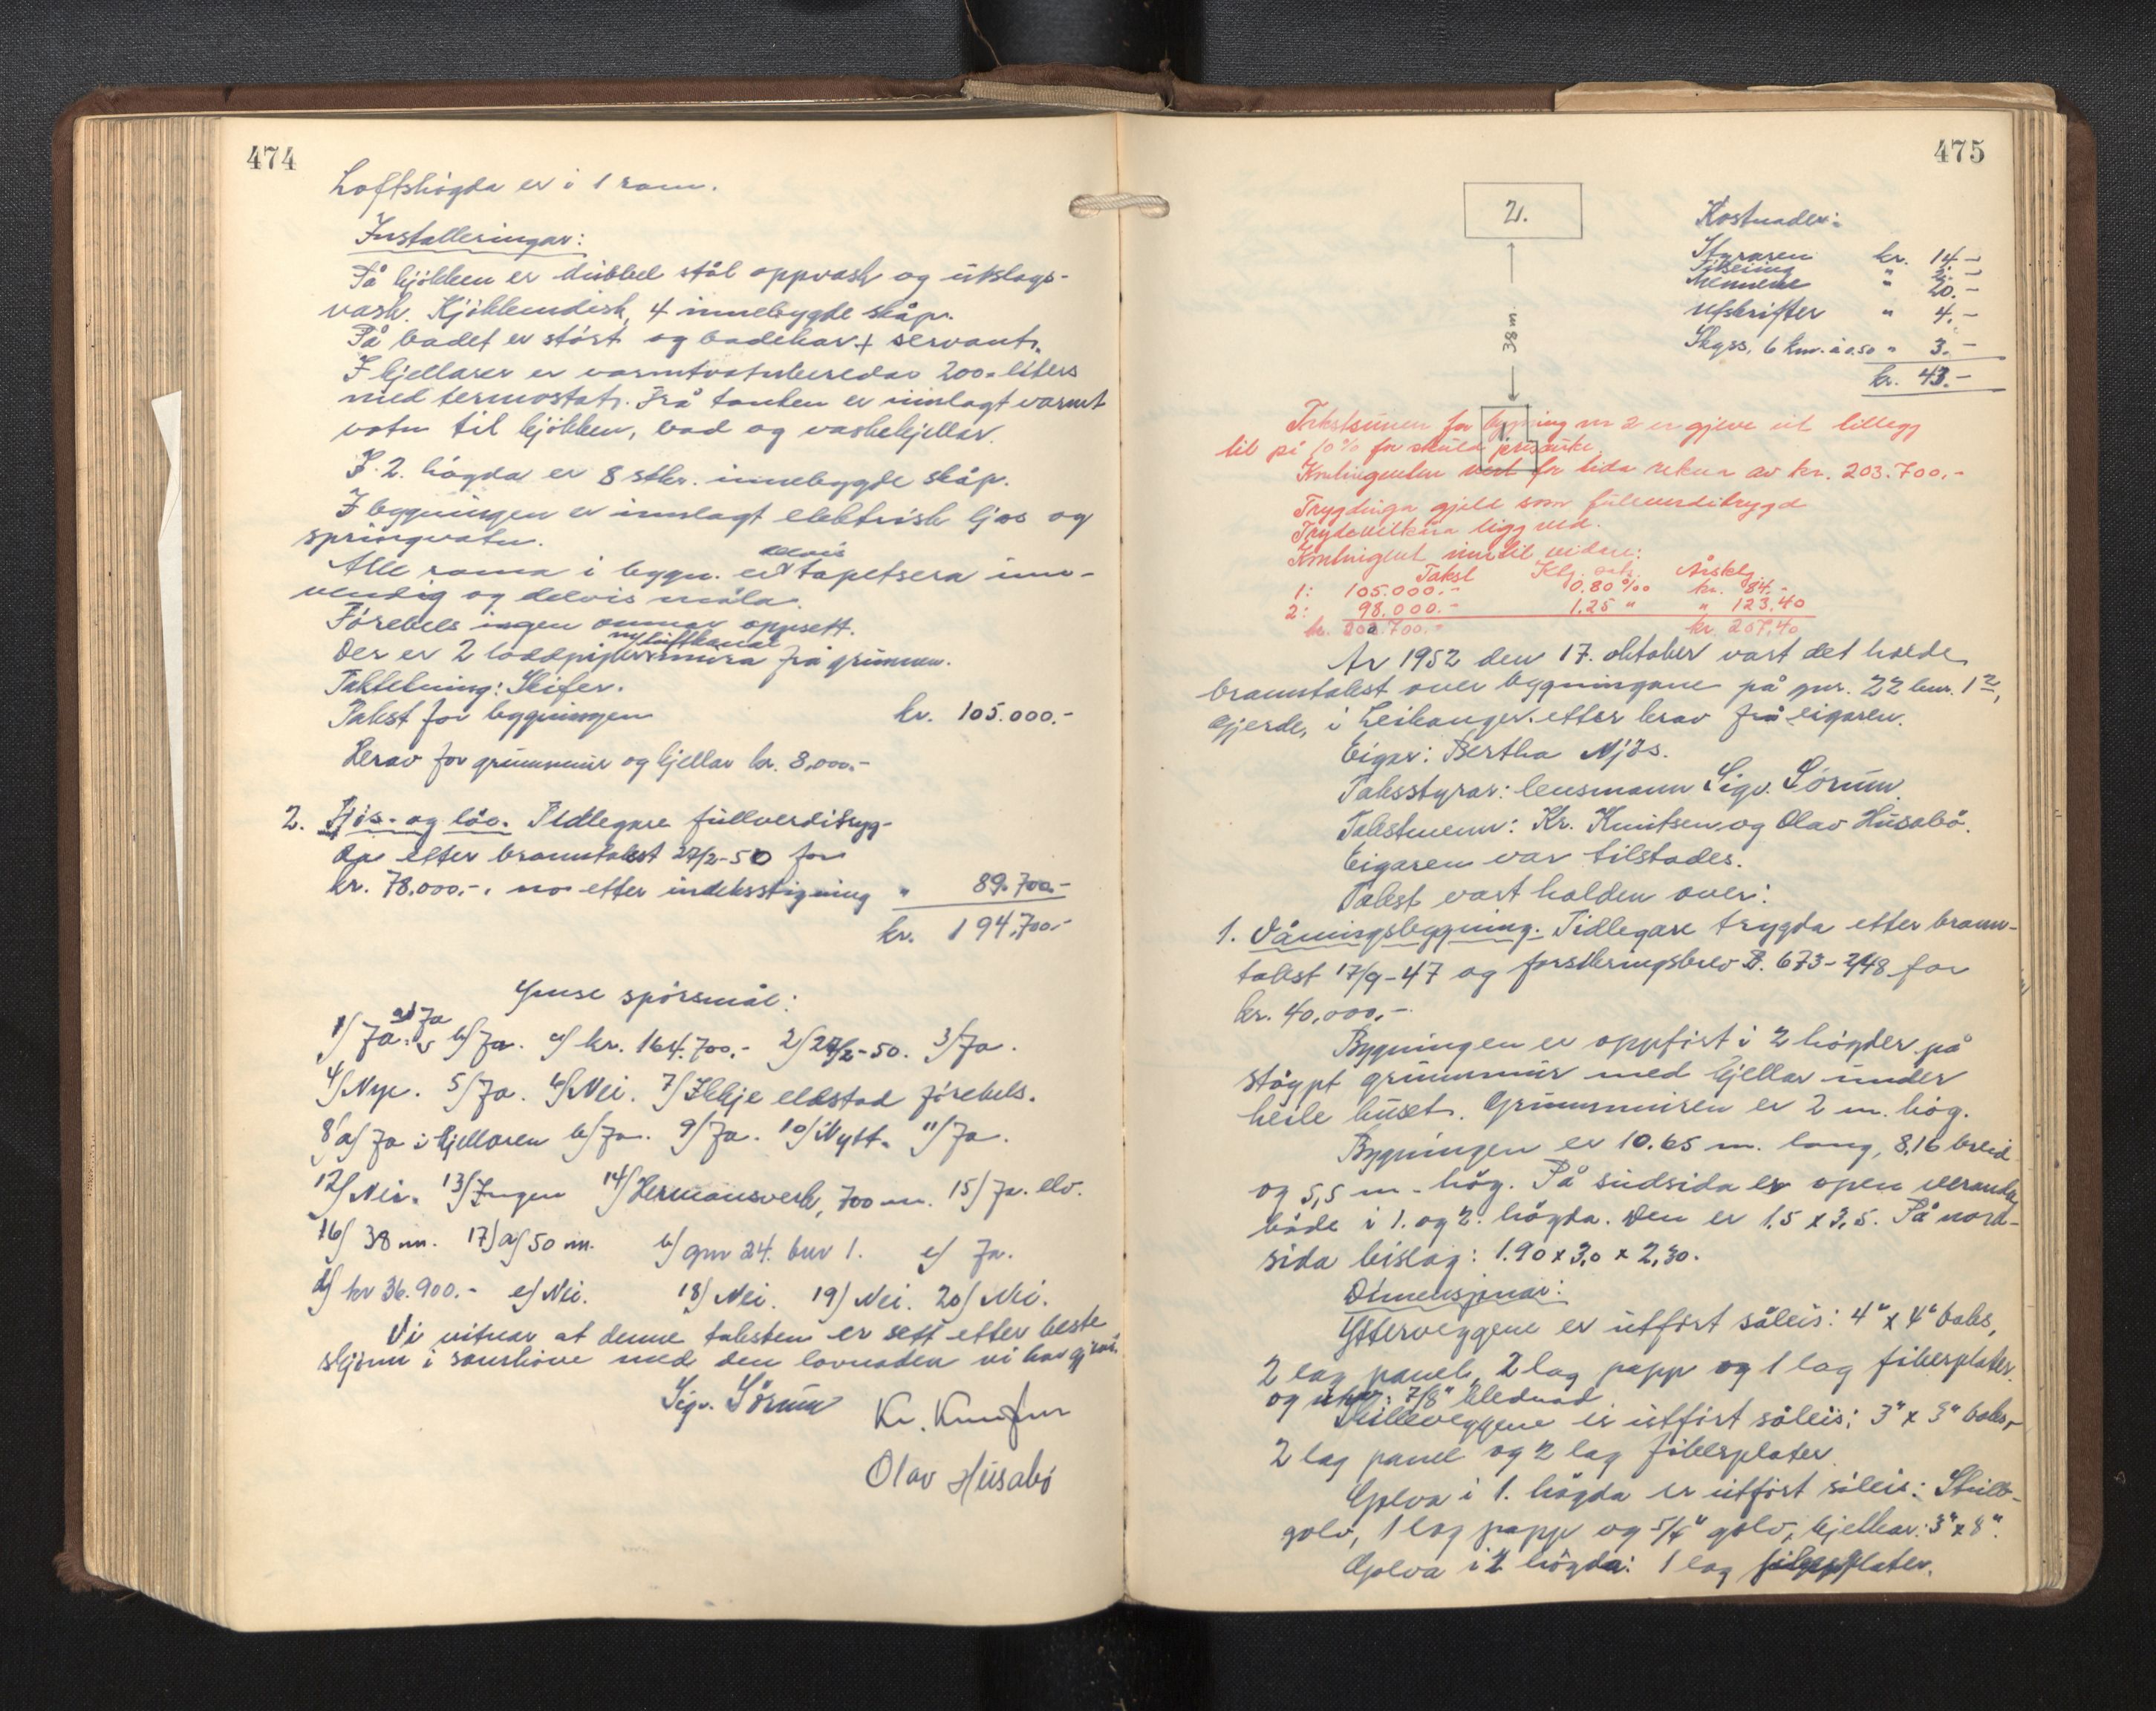 474
Loftshögda er i 1 rom.
Installeringar:
På kjökken er dubbel stål oppvask og utslags-
vask. Kjökkendisk, 4 innebygde skåp.
På badet er stört og badekar + servant.
I kjellaren er varmtvatnberedar 200-liters
med termostat. Frå tanken er innlagt varmt
vatn til kjökken, bad og vaskekjellar.
I 2. högda er 8 stkr. innebygde skåp.
I bygningen er innlagt elektrisk ljos og
springvatn.
Alle roma i bygn. er delvis tapetsera inn-
vendig og delvis måla.
Förebels ingen omnar oppsett.
Der er 2 loddpipur m/luftkanal mura frå grunnen.
Taktekning: Skifer.
Takst for bygningen kr. 105.000.-
Herav for grunnmur og kjellar kr. 8,000.-
2. Fjös- og löe. Tidlegare fullverditryg-
da etter branntakst 27/2-50 for
kr. 78.000.-, no etter indeksstigning " 89.700.-
kr. 194,700.-
Ymse spörsmål:
1/ Ja. a/ Ja b/ Ja. c/ kr. 164.700.- 2/ 27/2-50. 3/ Ja.
4/ Nye. 5/ Ja. 6/ Nei. 7/ Ikkje eldstad förebels.
8/ a/ Ja i kjellaren b/ Ja. 9/ Ja. 10/ Nytt. 11/ Ja.
12/ Nei. 13/ Ingen 14/ Hermansverk, 700 m. 15/ Ja. elv.
16/ 38 m. 17/ a/ 50 m. b/ gnr 24. bnr 1. c/ Ja.
d/ kr 36.900.- e/ Nei. 18/ Nei. 19/ Nei. 20/ Nei.
Vi vitnar at denne taksten er sett etter beste
skjönn i samhöve med den lovnaden vi har gjeve.
Sigv. Sörum Kr. Knutsen
Olav Husabö
475
2.
38 m.
1.
Kostnader:
Styraren kr. 14.-
" 2.-
Mennene " 20.-
Utskrifter " 4.-
Skyss, 6 km. à 0.50 " 3.-
kr. 43.-
Takstsumen for bygning nr 2 er gjeve eit tillegg
til på 10% for
Kontingenten vert for tida rekna av kr. 203.700,-
Trygdinga gjeld som fullverditrygd
Trygdevilkåra ligg ved.
Kontingent inntil vidare:
Takst Årsktg
1: 105.000.- 0.80 ‰ kr. 84.-
2: 98.000.- 1.25 " " 123.40
kr. 203.700.- kr. 207.40
År 1952 den 17. oktober vart det halde
branntakst over bygningane på gnr. 22 bnr. 12,
Gjerde, i Leikanger etter krav frå eigaren.
Eigar: Bertha Njös.
Takststyrar: lensmann Sigv. Sörum.
Takstmenn: Kr. Knutsen og Olav Husabö.
Eigaren var tilstades.
Takst vart halden over:
1. Våningsbygning. Tidlegare trygda etter brann-
takst 17/9-47 og forsikringsbrev B. 673-2/48 for
kr. 40,000,-.
Bygningen er oppfört i 2 högder på
stöypt grunnmur med kjellar under
heile huset. Grunnmuren er 2 m. hög.
Bygningen er 10.65 m. lang, 8,16 breid
og 5,5 m. hög. På sudsida er open veranda
både i 1. og 2. högda. Den er 1,5 x 3,5. På nord-
sida bislag: 1.90 x 3,0 x 2,30.
Dimensjonar:
Ytterveggene er utfört såleis: 4" x 4" boks,
2 lag panel, 2 lag papp og 1 lag fiberplater.
og utv.: 7/8" klednad
Skilleveggene er utfört såleis: 3" x 3" boks,
2 lag panel og 2 lag fiberplater.
Golva i 1. högda er utfört såleis: Stubb-
golv, 1 lag papp og 5/4" golv, bjelkar: 3" x 8".
Golva i 2 högda: 1 lag fiberplater.